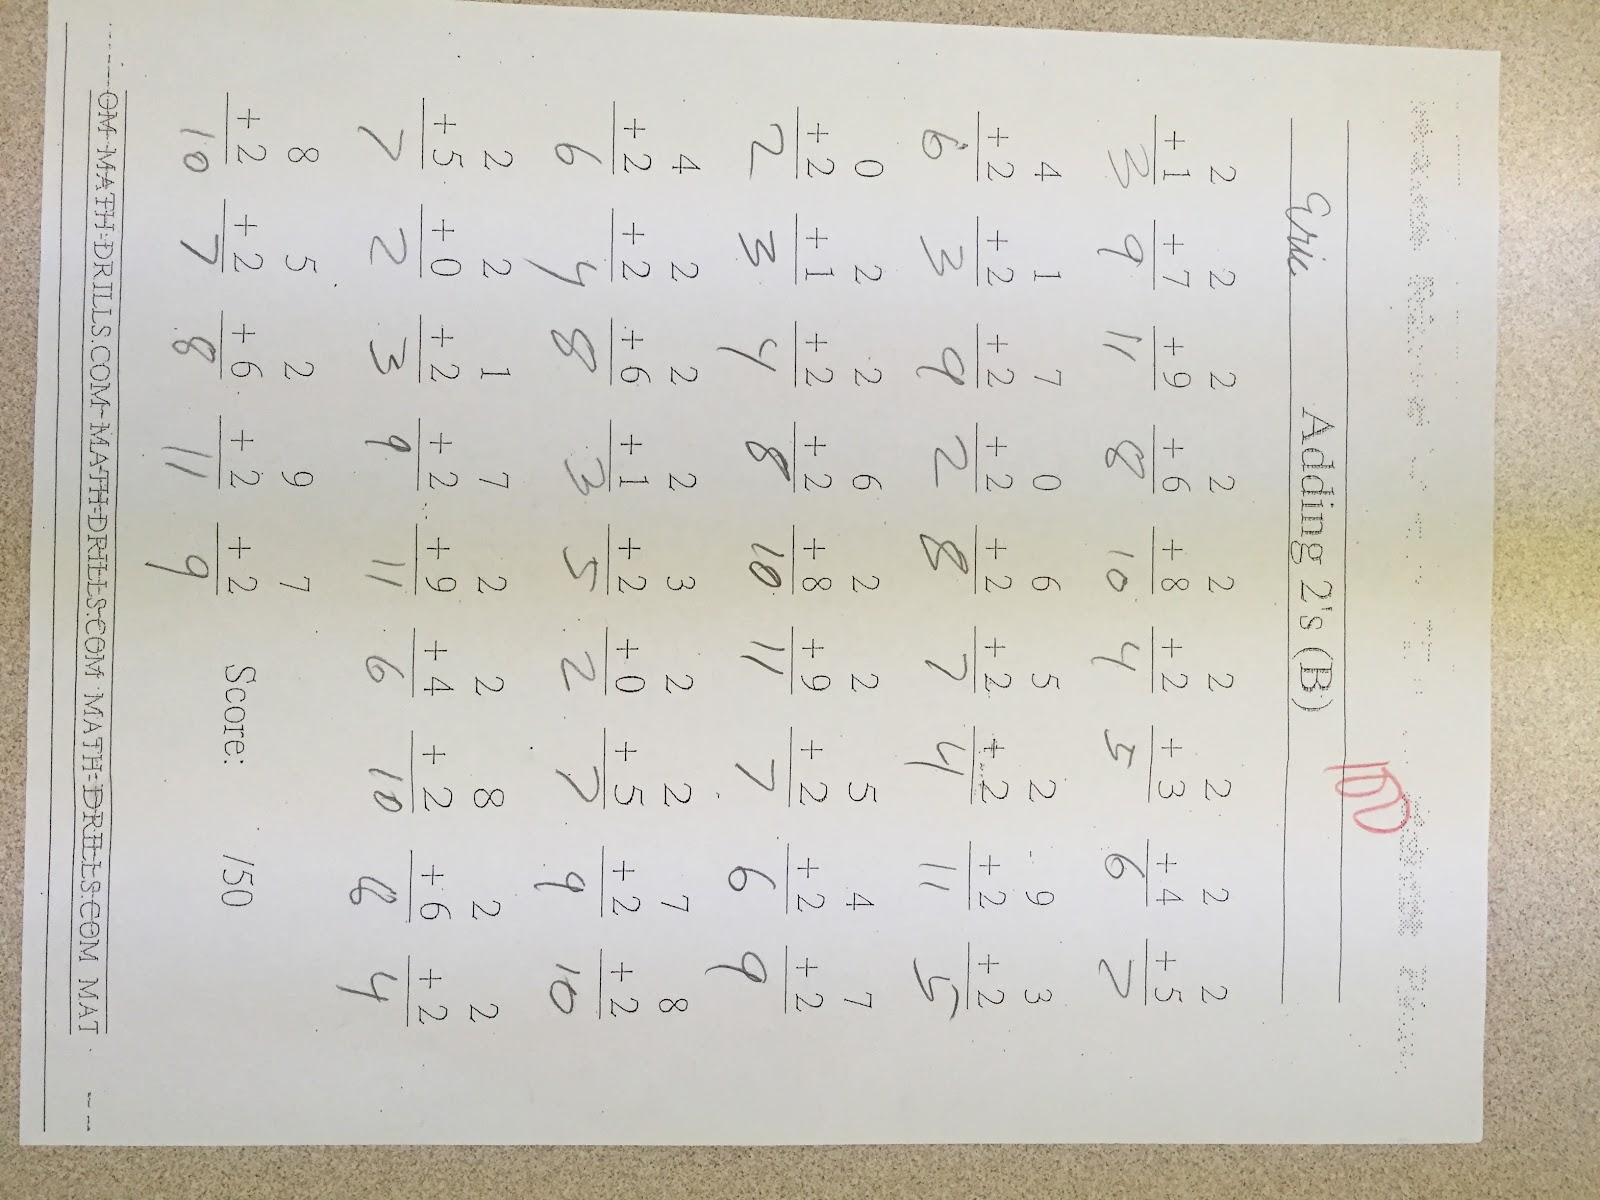 100
Adding 2's (B)
Eric
2 2 2 2 2 2 2 2 2
+1 +7 +9 +6 +8 +2 +3 +4 +5
3 9 11 8 10 4 5 6 7
4 1 7 0 6 5 2 9 3
+2 +2 +2 +2 +2 +2 +2 +2 +2
6 3 9 2 8 7 4 11 5
0 2 2 6 2 2 5 4 7
+2 +1 +2 +2 +8 +9 +2 +2 +2
2 3 4 8 10 11 7 6 9
4 2 2 2 3 2 2 7 8
+2 +2 +6 +1 +2 +0 +5 +2 +2
6 4 8 3 5 2 7 9 10
2 2 1 7 2 2 8 2 2
+5 +0 +2 +2 +9 +4 +2 +6 +2
7 2 3 9 11 6 10 8 4
8 5 2 9 7
+2 +2 +6 +2 +2 Score: /50
10 7 8 11 9
OM MATH-DRILLS.COM MATH-DRILLS.COM MATH-DRILLS.COM MAT